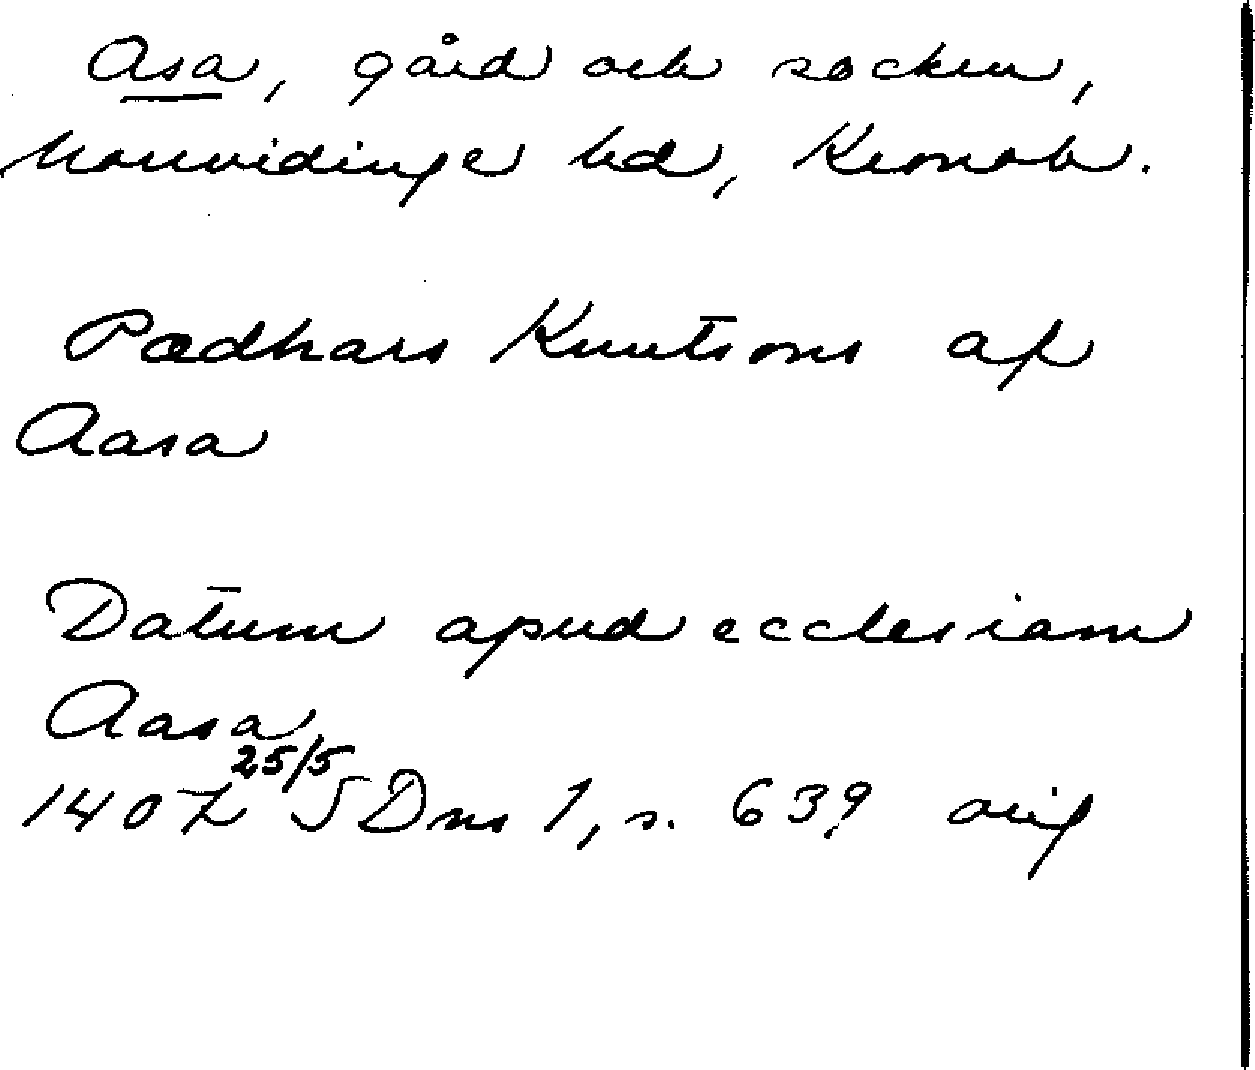 Asa, gård och socken,
Norrvidinge hd, Kronob.
Pædhars Knutsons af
Aasa
Datum apud ecclesiam
Aasa
1407 25/5 SDns 1, s. 639 orig